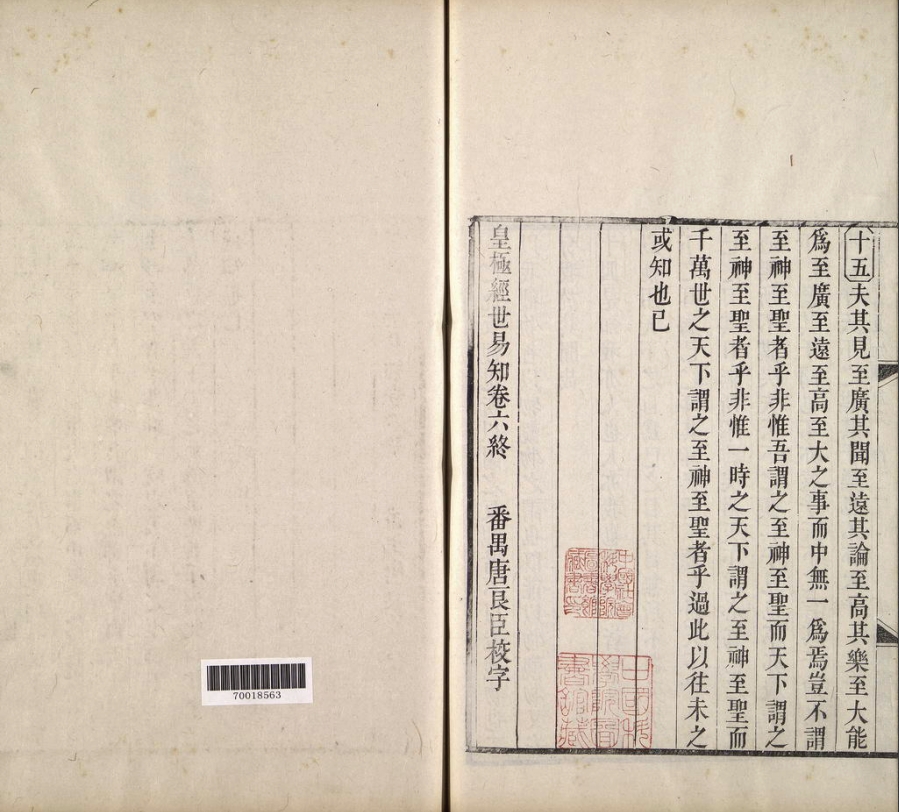 十五夫其見至廣其聞至遠其論至高其樂至大能
爲至廣至遠至高至大之事而中無一爲焉豈不謂
至神至聖者乎非惟吾謂之至神至聖而天下謂之
至神至聖者乎非惟一時之天下謂之至神至聖而
千萬世之天下謂之至神至聖者乎過此以往未之
或知也已
皇極經世易知卷六終
番禺唐良臣校字
中國科
學院圖
書館藏
70018563